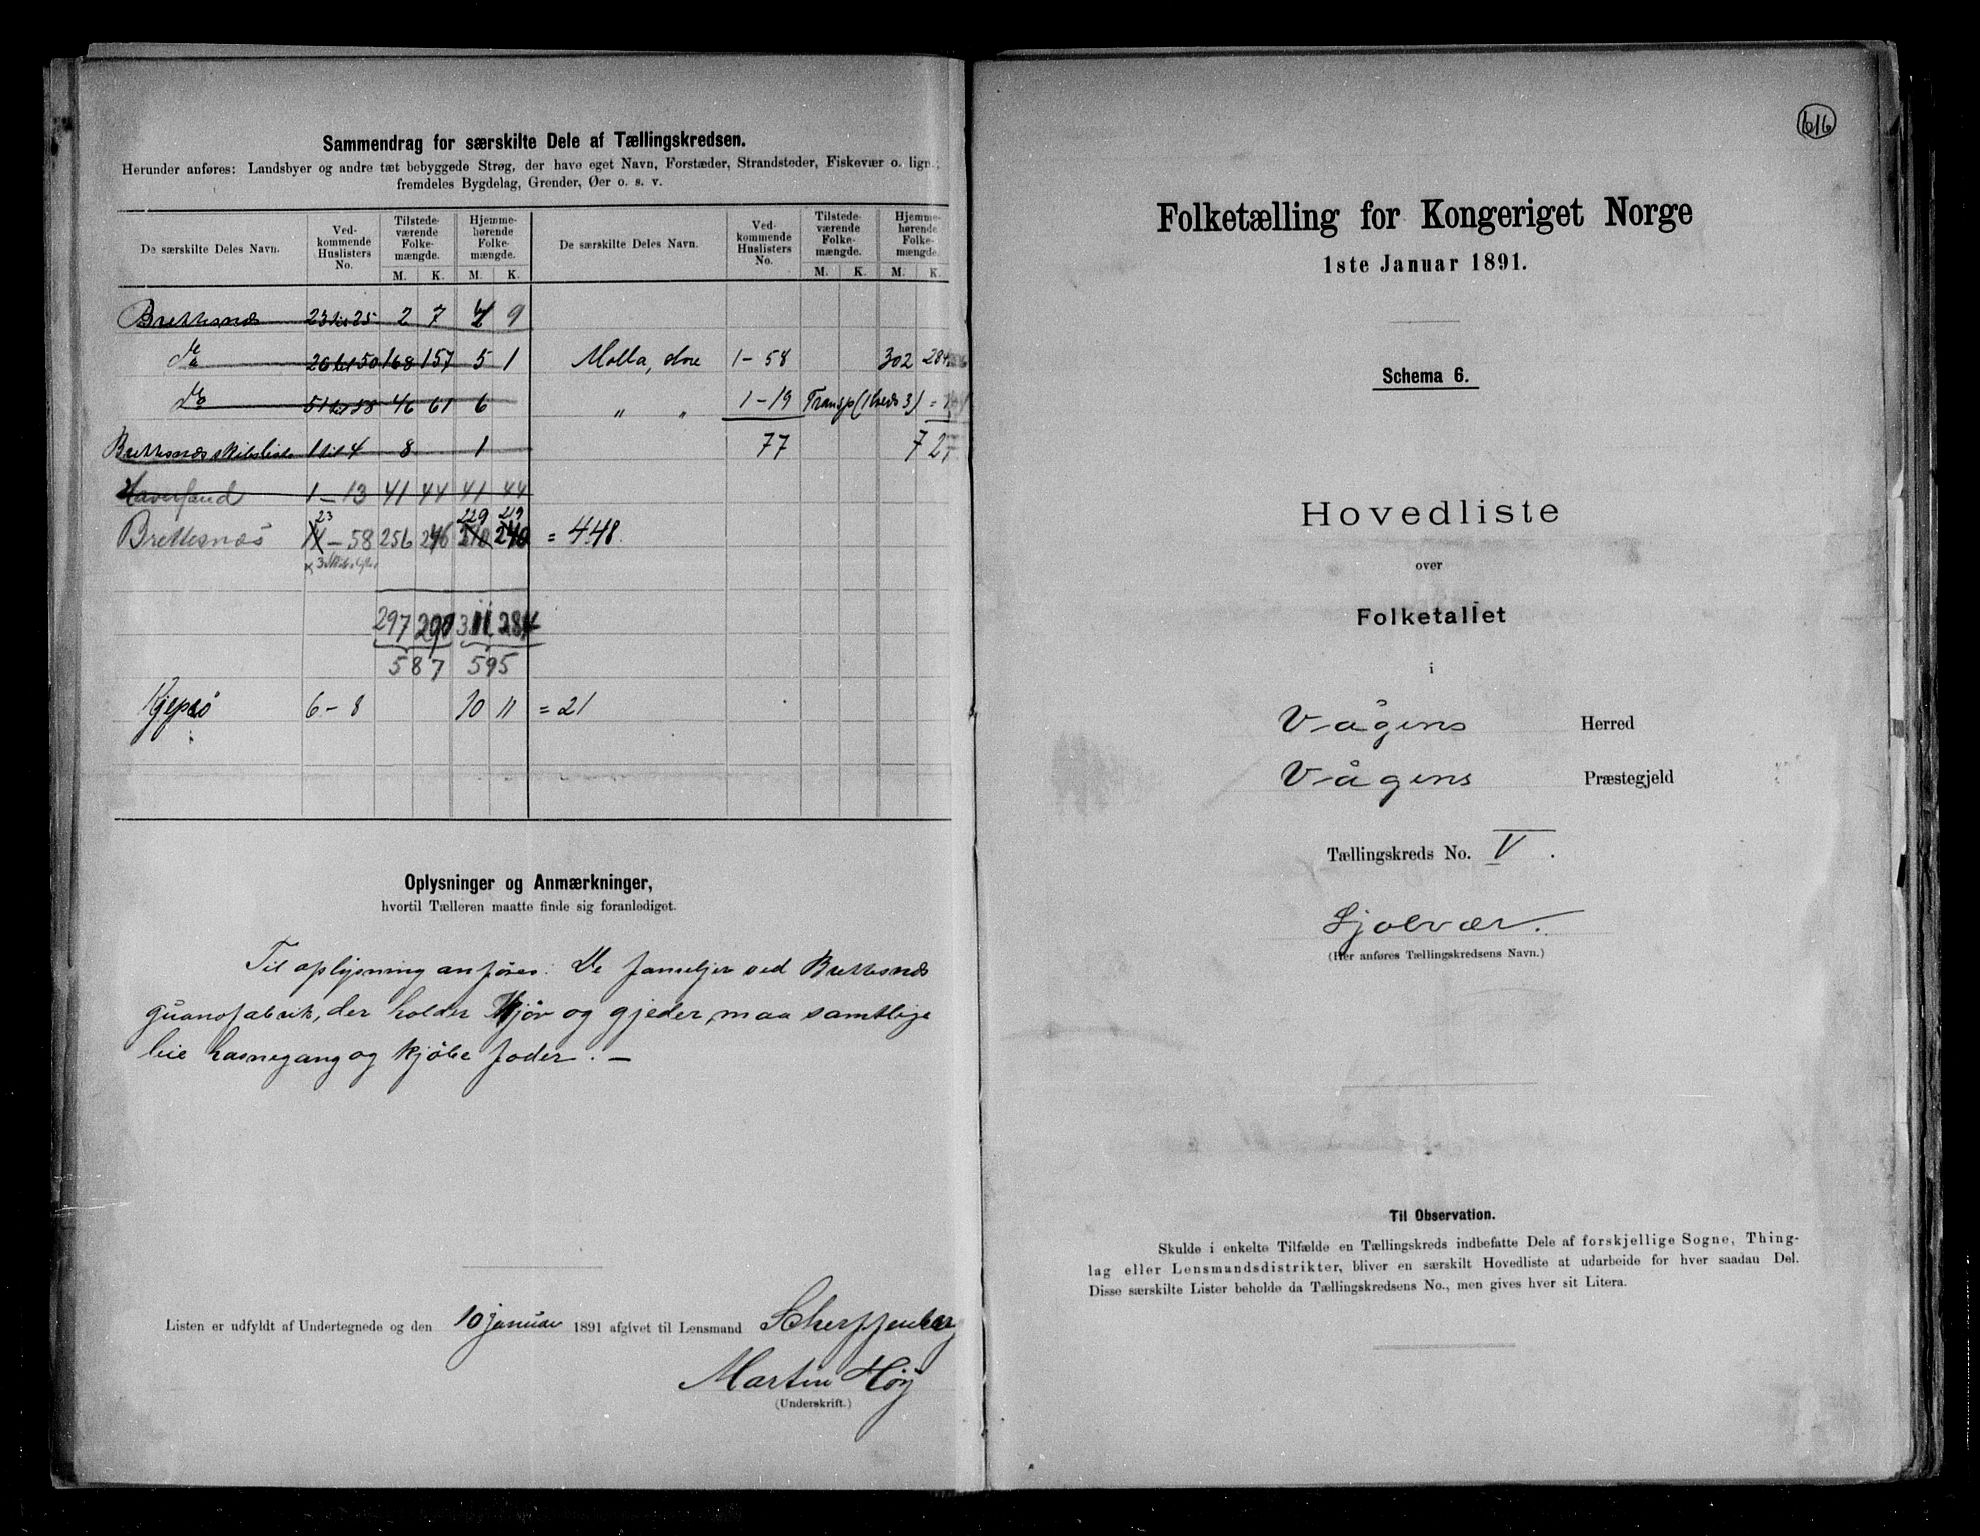 Sammendrag for særskilte Dele af Tællingskredsen.
Herunder anføres: Landsbyer og andre tæt bebyggede Strøg, der have eget Navn, Forstæder, Strandsteder, Fiskevær o. lign.;
fremdeles Bygdelag, Grender, Øer o. s. v.
De særskilte Deles Navn. Ved-kommende Huslisters No. Tilstede-værende Folke-mængde. M. K. Hjemme-hørende Folke-mængde. M. K. De særskilte Deles Navn. Ved-kommende Huslisters No. Tilstede-værende Folke-mængde. M. K. Hjemme-hørende Folke-mængde. M. K.
Brettesnæs 23 til 25 2 7 9
do 26 til 50 168 157 5 1 Molla, store 1-58 302 284
do 51 til 58 46 61 6 " " 1-19 Transp (Kreds 3)
Brettesnæs skibsliste 1 til 4 8 1 77 727
Haversand 1-13 41 44 41 44
23 229 219
Brettesnæs 14-58 256 246 270 240 = 448
297 290 311 284
587 595
Kjepsö 6-8 10 11 = 21
Oplysninger og Anmærkninger,
hvortil Tælleren maatte finde sig foranlediget.
Til oplysning anføres: De familjer ved Brettesnæs
guanofabrik, der holder Kjør og gjeder, maa samtlige
leie havnegang og kjöbe foder. —
Listen er udfyldt af Undertegnede og den 10 januar 1891 afgivet til Lensmand Scherffenberg
Martin Høy
(Underskrift.)
616
Folketælling for Kongeriget Norge
1ste Januar 1891.
Schema 6.
Hovedliste
over
Folketallet
i
Vågens Herred
Vågens Præstegjeld
Tællingskreds No. V.
Sjolvær.
(Her anføres Tællingskredsens Navn.)
Til Observation.
Skulde i enkelte Tilfælde en Tællingskreds indbefatte Dele af forskjellige Sogne, Thing-
lag eller Lensmandsdistrikter, bliver en særskilt Hovedliste at udarbeide for hver saadan Del.
Disse særskilte Lister beholde da Tællingskredsens No., men gives hver sit Litera.